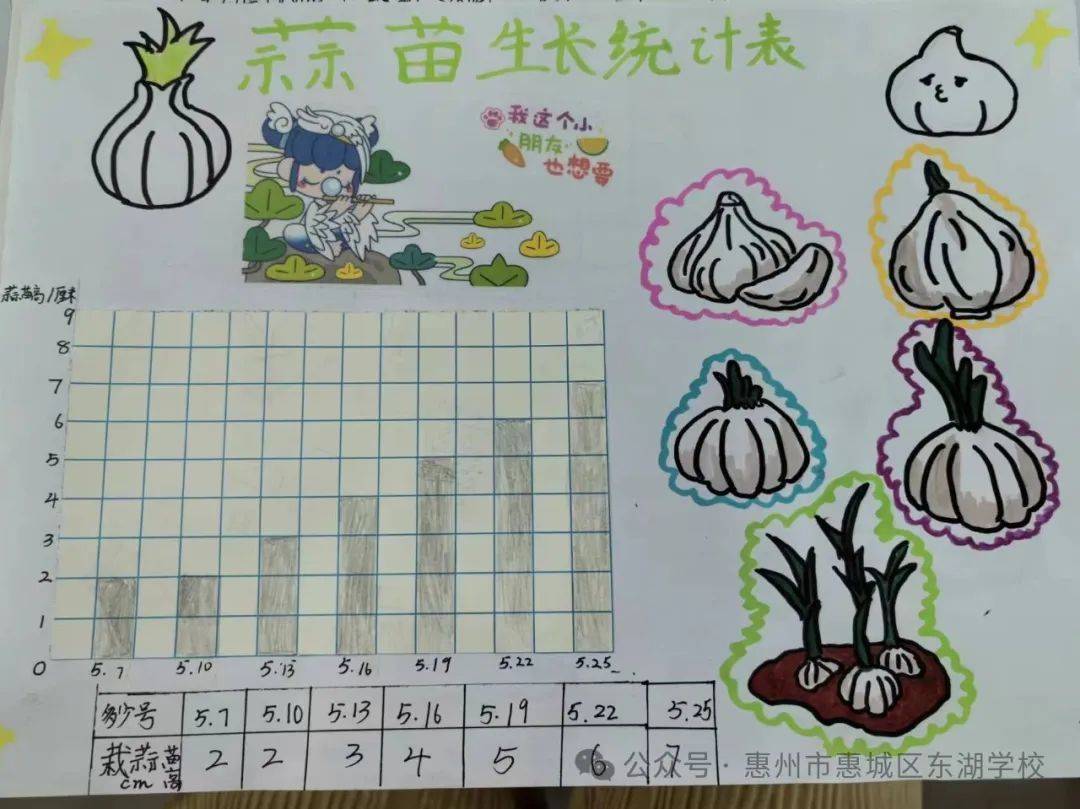 蒜苗生长统计表
我这个小
朋友
也想要
蒜苗高/厘米
9
8
7
6
5
4
3
2
1
0
5.7 5.10 5.13 5.16 5.19 5.22 5.25
号 5.7 5.10 5.13 5.16 5.19 5.22 5.25
栽蒜苗高cm 2 2 3 4 5 6 7
公众号·惠州市惠城区东湖学校